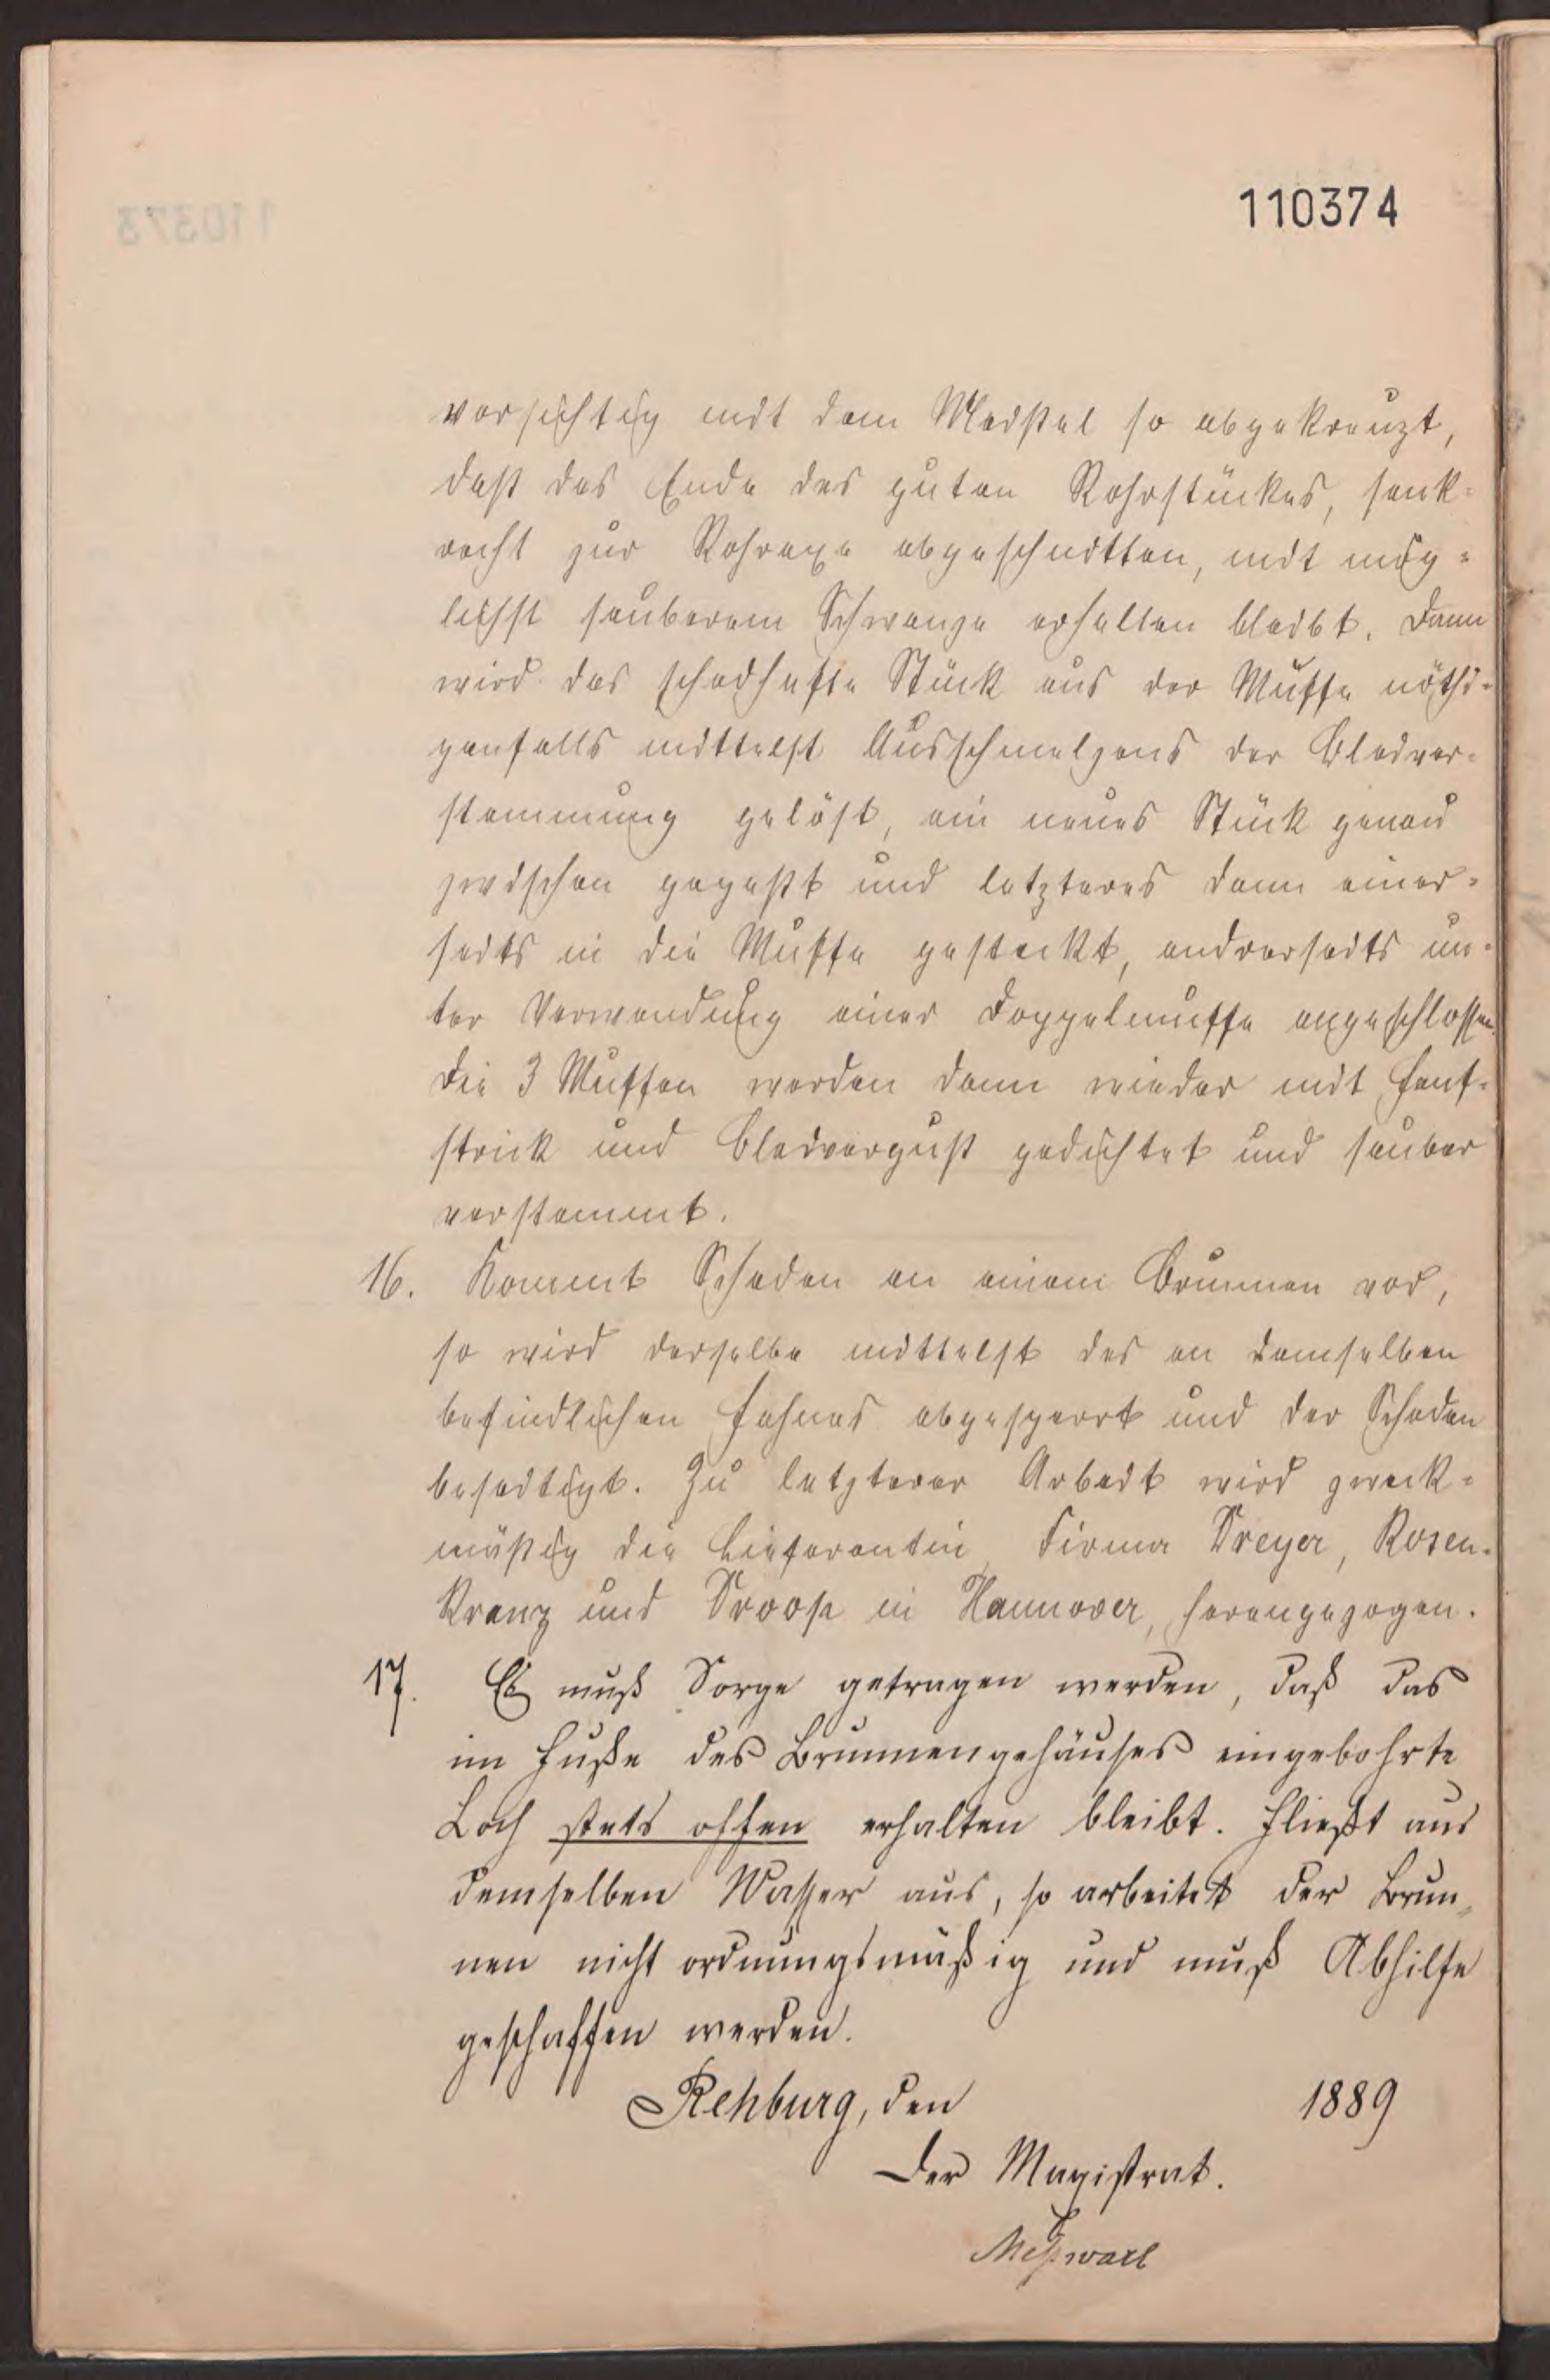 110374
vorsichtig mit dem Meißel so abgekreuzt,
daß das Ende des guten Rohrstückes, senk-
recht zur Rohraxe abgeschnitten, mit mög-
lichst sauberem Schwanze erhalten bleibt. Dann
wird das schadhafte Stück aus der Muffe nöthi-
genfalls mittelst Ausschmelzens der Bleiver-
stemmung gelöst, ein neues Stück genau
zwischen gepaßt und letzteres dann einer-
seits in die Muffe gesteckt, andrerseits un-
ter Verwendung einer Doppelmuffe angeschlossen.
Die 3 Muffen werden dann wieder mit Hanf-
strick und Bleiverguß gedichtet und sauber
verstemmt.
16. Kommt Schaden an einem Brunnen vor,
so wird derselbe mittelst des an demselben
befindlichen Hahnes abgesperrt und der Schaden
beseitigt. Zu letzterer Arbeit wird zweck-
mäßig die Lieferantin, Firma Dreyer, Rosen-
kranz und Droop in Hannover, herangezogen.
17. Es muß Sorge getragen werden, daß das
im Fuße des Brunnengehäuses eingebohrte
Loch stets offen erhalten bleibt. Fließt aus
demselben Wasser aus, so arbeitet der Brun-
nen nicht ordnungsmäßig und muß Abhilfe
geschaffen werden.
Rehburg, den 1889
Der Magistrat.
Meßwarb